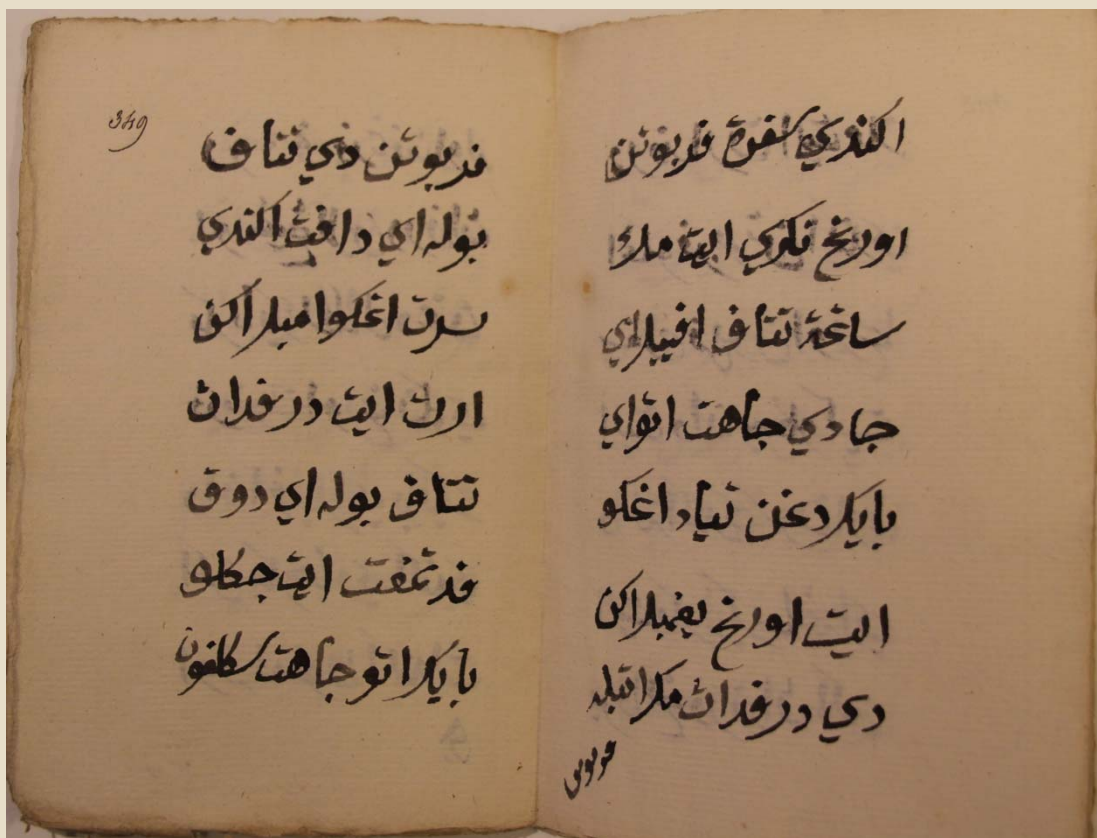 اكندري سفرة فربوتن
اورڠ نكري ايت مك
ساڠة تتاف افبيلاي
جادي جاهت اتواي
بايك دڠن تياد اڠكو
ايت اورڠ يڠمبلاكن
دي درفدات مك اتيله
فربوتن
349
فربوتن دني تتاف
بوله اي دافت اكندري
سرت اڠكوا مبلاكن
ارت ايت درفدات
تتاف بوله اي دوق
فد تمفت ايت جكلو
بايك اتو جاهت سكلفون